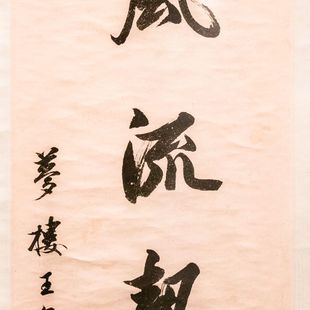 風流
夢樓王